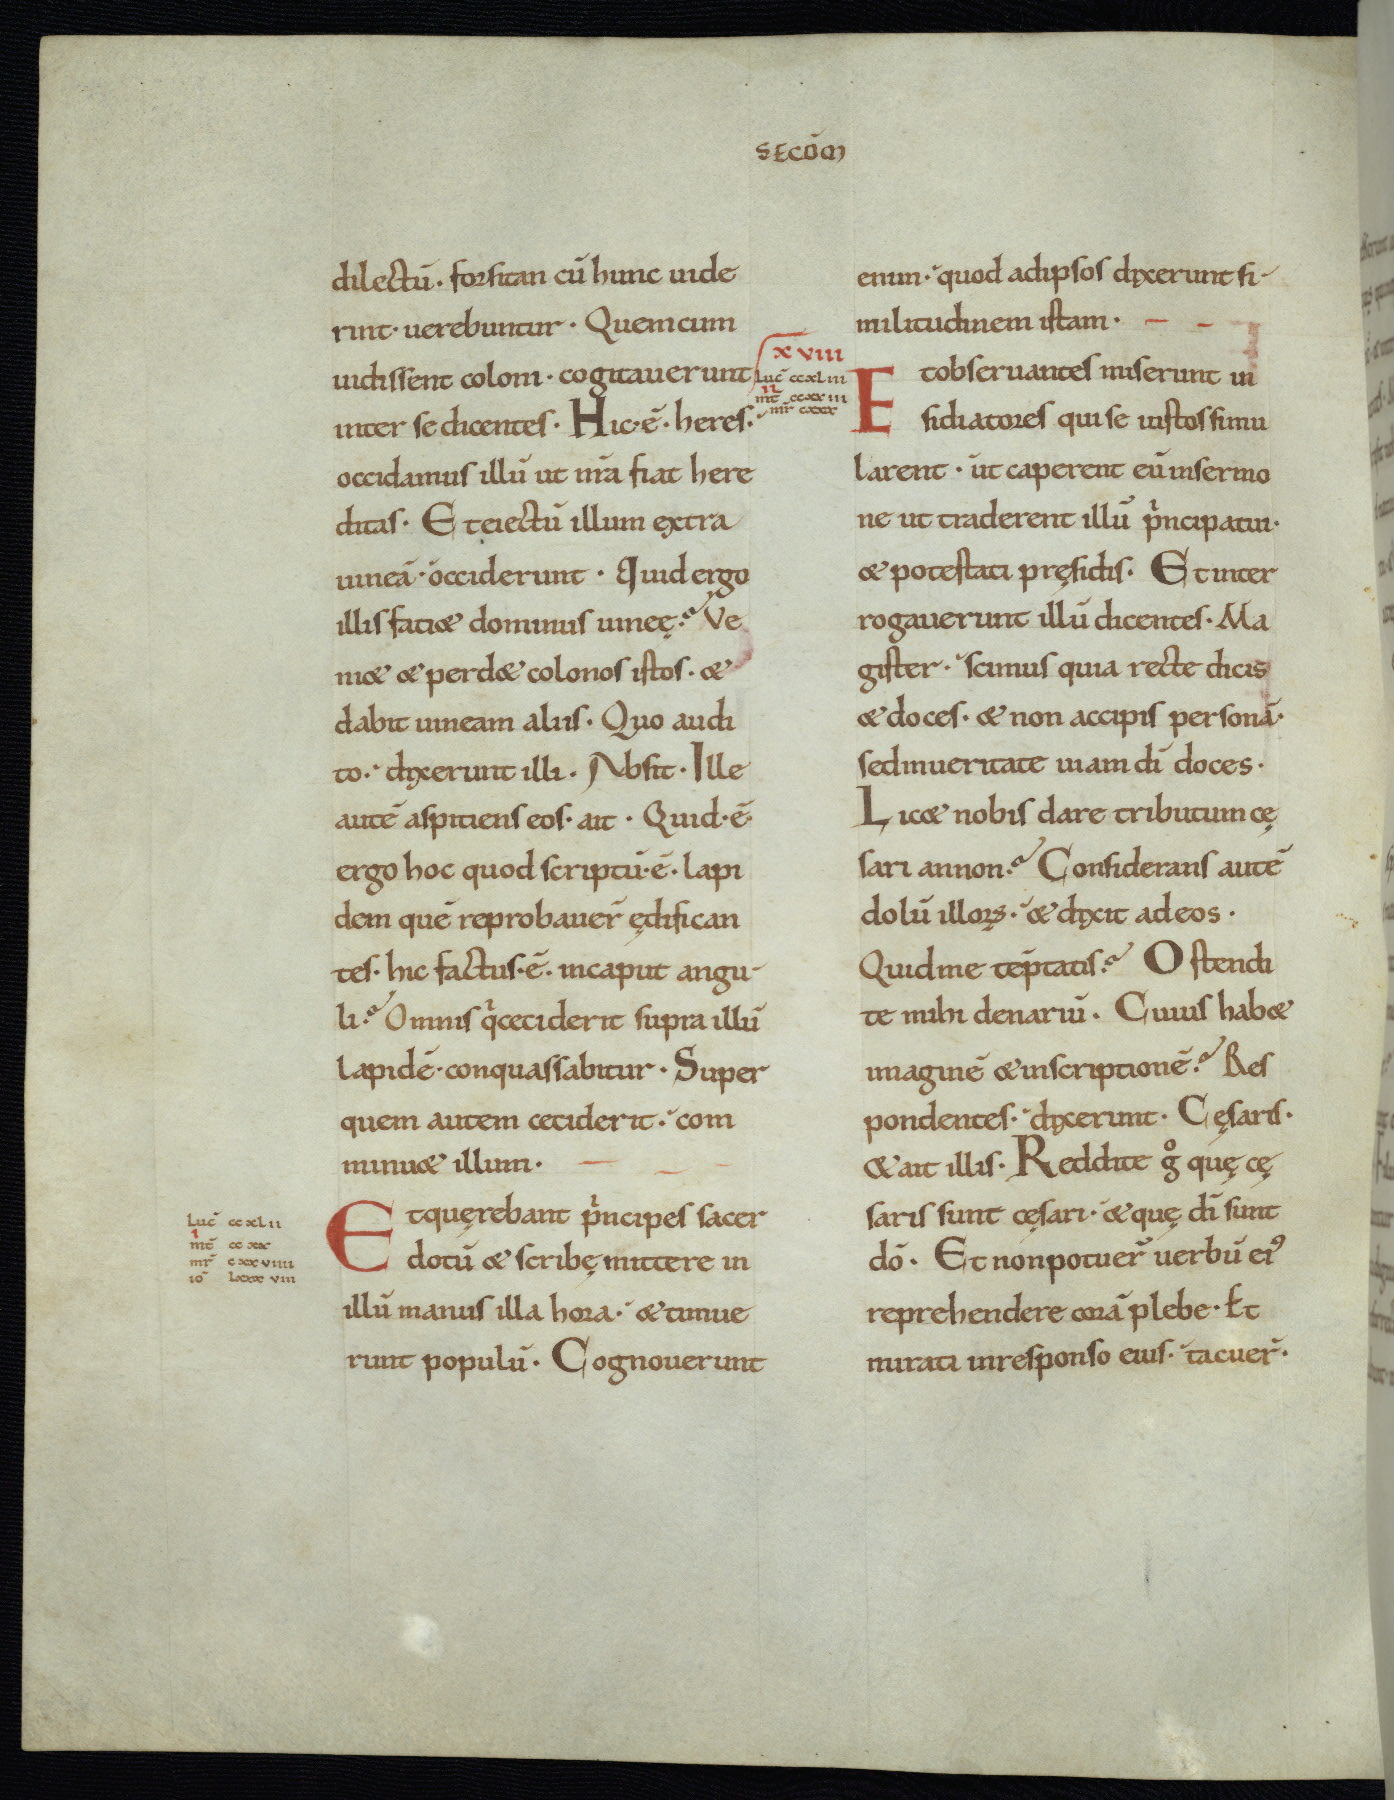 SECŪM
dilectū· forsitan cū hunc uide
rint· uerebuntur· Quem cum
uidissent coloni· cogitauerunt
inter se dicentes· Hic·ē· heres·
occidamus illū ut nr̄a fiat here
ditas· Et eiectū illum extra
uineā· occiderunt· Quid ergo
illis faciet dominus uineę? Ve
niet et perdet colonos istos· et
dabit uineam aliis· Quo audi
to· dixerunt illi· Absit· Ille
autē aspitiens eos· ait· Quid·ē·
ergo hoc quod scriptū·ē· lapi
dem quē reprobauer̄ ędifican
tes· hic factus·ē· in caput angu-
li? Omnis q̇ ceciderit supra illū
lapidē· conquassabitur· Super
quem autem ceciderit· com
minuet illum·
Luc̄ ccxLii
i
mt̄ ccxx
mr̄ cxxviiii
io̅ Lxxxviii
Et quęrebant pͥncipes sacer
dotū et scribę mittere in
illū manus illa hora· et timue
runt populū· Cognouerunt
enim· quod ad ipsos dixerunt si-
militudinem istam·
xviii
Luc̄ ccxLiii
ii
mt̄ ccxxiii
mr̄ cxxx
Et obseruantes miserunt in
sidiatores qui se iustos simu
larent· ut caperent eū in sermo
ne ut traderent illū pͥncipatui·
et potestati pręsidis· Et inter
rogauerunt illū dicentes· Ma
gister· scimus quia recte dicis
et doces· et non accipis personā·
sed in ueritate uiam dī doces·
Licet nobis dare tributum cę
sari an non? Considerans autē
dolū illoꝝ· et dixit ad eos·
Quid me tēptatis? Ostendi
te mihi denariū· Cuius habet
imaginē et inscriptionē? Res
pondentes· dixerunt· Cęsaris·
Et ait illis· Reddite gͦ quę cę
saris sunt cęsari· et quę dī sunt
dō· Et non potuer̄ uerbū eiꝰ
reprehendere corā plebe· Et
mirati in responso eius· tacuer̄·